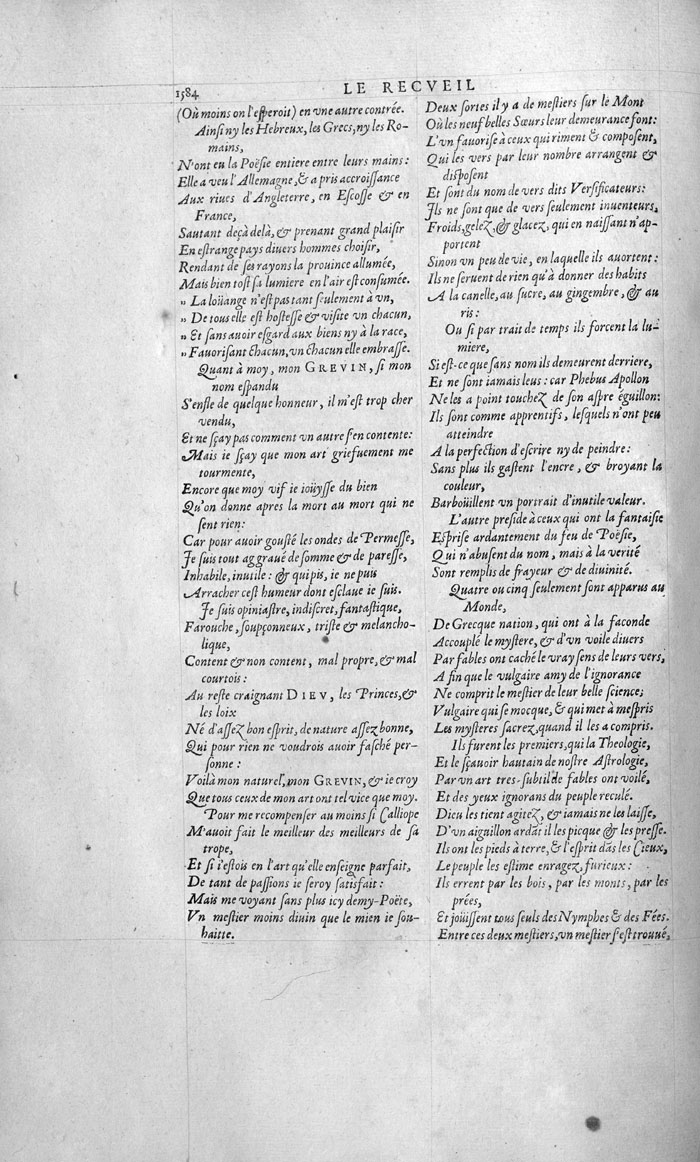 1584
LE RECVEIL
(Où moins on l'esperoit) en vne autre contrée.
Ainsi ny les Hebreux, les Grecs, ny les Ro-
mains,
N'ont eu la Poësie entiere entre leurs mains:
Elle a veu l'Allemagne, & a pris accroissance
Aux riues d'Angleterre, en Escosse & en
France,
Sautant deçà delà, & prenant grand plaisir
En estrange pays diuers hommes choisir,
Rendant de ses rayons la prouince allumée,
Mais bien tost sa lumiere en l'air est consumée.
„ La loüange n'est pas tant seulement à vn,
„ De tous elle est hostesse & visite vn chacun,
„ Et sans auoir esgard aux biens ny à la race,
„ Fauorisant chacun, vn chacun elle embrasse.
Quant à moy, mon GREVIN, si mon
nom espandu
S'enfle de quelque honneur, il m'est trop cher
vendu,
Et ne sçay pas comment vn autre s'en contente:
Mais ie sçay que mon art griefuement me
tourmente,
Encore que moy vif ie ioüysse du bien
Qu'on donne apres la mort au mort qui ne
sent rien:
Car pour auoir gousté les ondes de Permesse,
Je suis tout aggraué de somme & de paresse,
Inhabile, inutile: & qui pis, ie ne puis
Arracher cest humeur dont esclaue ie suis.
Je suis opiniastre, indiscret, fantastique,
Farouche, soupçonneux, triste & melancho-
lique,
Content & non content, mal propre, & mal
courtois:
Au reste craignant DIEV, les Princes, &
les loix
Né d'assez bon esprit, de nature assez bonne,
Qui pour rien ne voudrois auoir fasché per-
sonne:
Voilà mon naturel, mon GREVIN, & ie croy
Que tous ceux de mon art ont tel vice que moy.
Pour me recompenser au moins si Calliope
M'auoit fait le meilleur des meilleurs de sa
trope,
Et si i'estois en l'art qu'elle enseigne parfait,
De tant de passions ie seroy satisfait:
Mais me voyant sans plus icy demy-Poëte,
Vn mestier moins diuin que le mien ie sou-
haitte.
Deux sortes il y a de mestiers sur le Mont
Où les neuf belles Sœurs leur demeurance font:
L'vn fauorise à ceux qui riment & composent,
Qui les vers par leur nombre arrangent &
disposent
Et sont du nom de vers dits Versificateurs:
Jls ne sont que de vers seulement inuenteurs,
Froids, gelez, & glacez, qui en naissant n'ap-
portent
Sinon vn peu de vie, en laquelle ils auortent:
Ils ne seruent de rien qu'à donner des habits
A la canelle, au sucre, au gingembre, & au
ris:
Ou si par trait de temps ils forcent la lu-
miere,
Si est-ce que sans nom ils demeurent derriere,
Et ne sont iamais leus: car Phebus Apollon
Ne les a point touchez de son aspre éguillon:
Ils sont comme apprentifs, lesquels n'ont peu
atteindre
A la perfection d'escrire ny de peindre:
Sans plus ils gastent l'encre, & broyant la
couleur,
Barboüillent vn portrait d'inutile valeur.
L'autre preside à ceux qui ont la fantaisie
Esprise ardantement du feu de Poësie,
Qui n'abusent du nom, mais à la verité
Sont remplis de frayeur & de diuinité.
Quatre ou cinq seulement sont apparus au
Monde,
De Grecque nation, qui ont à la faconde
Accouplé le mystere, & d'vn voile diuers
Par fables ont caché le vray sens de leurs vers,
A fin que le vulgaire amy de l'ignorance
Ne comprit le mestier de leur belle science;
Vulgaire qui se mocque, & qui met à mespris
Les mysteres sacrez, quand il les a compris.
Ils furent les premiers, qui la Theologie,
Et le sçauoir hautain de nostre Astrologie,
Par vn art tres-subtil de fables ont voilé,
Et des yeux ignorans du peuple reculé.
Dieu les tient agitez, & iamais ne les laisse,
D'vn aiguillon ardāt il les picque & les presse.
Ils ont les pieds à terre, & l'esprit dās les Cieux,
Le peuple les estime enragez, furieux:
Ils errent par les bois, par les monts, par les
prées,
Et joüissent tous seuls des Nymphes & des Fées.
Entre ces deux mestiers, vn mestier s'est trouué,